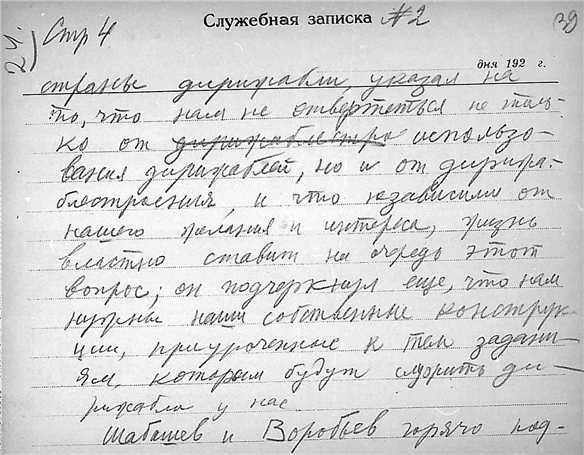 Служебная записка №2
39
24.
Стр 4
дня 192 г.
страны дирижабли, указал на
то, что нам не отвертеться не толь-
ко от дирижаблестро использо-
вания дирижаблей, но и от дирижа-
блестроения, и что независимо от
нашего желания и интереса, жизнь
властно ставит на очередь этот
вопрос; он подчеркнул еще, что нам
нужны наши собственные конструк-
ции, приуроченные к тем задани-
ям, которым будут служить ди-
рижабли у нас
Шабашев и Воробьев горячо под-